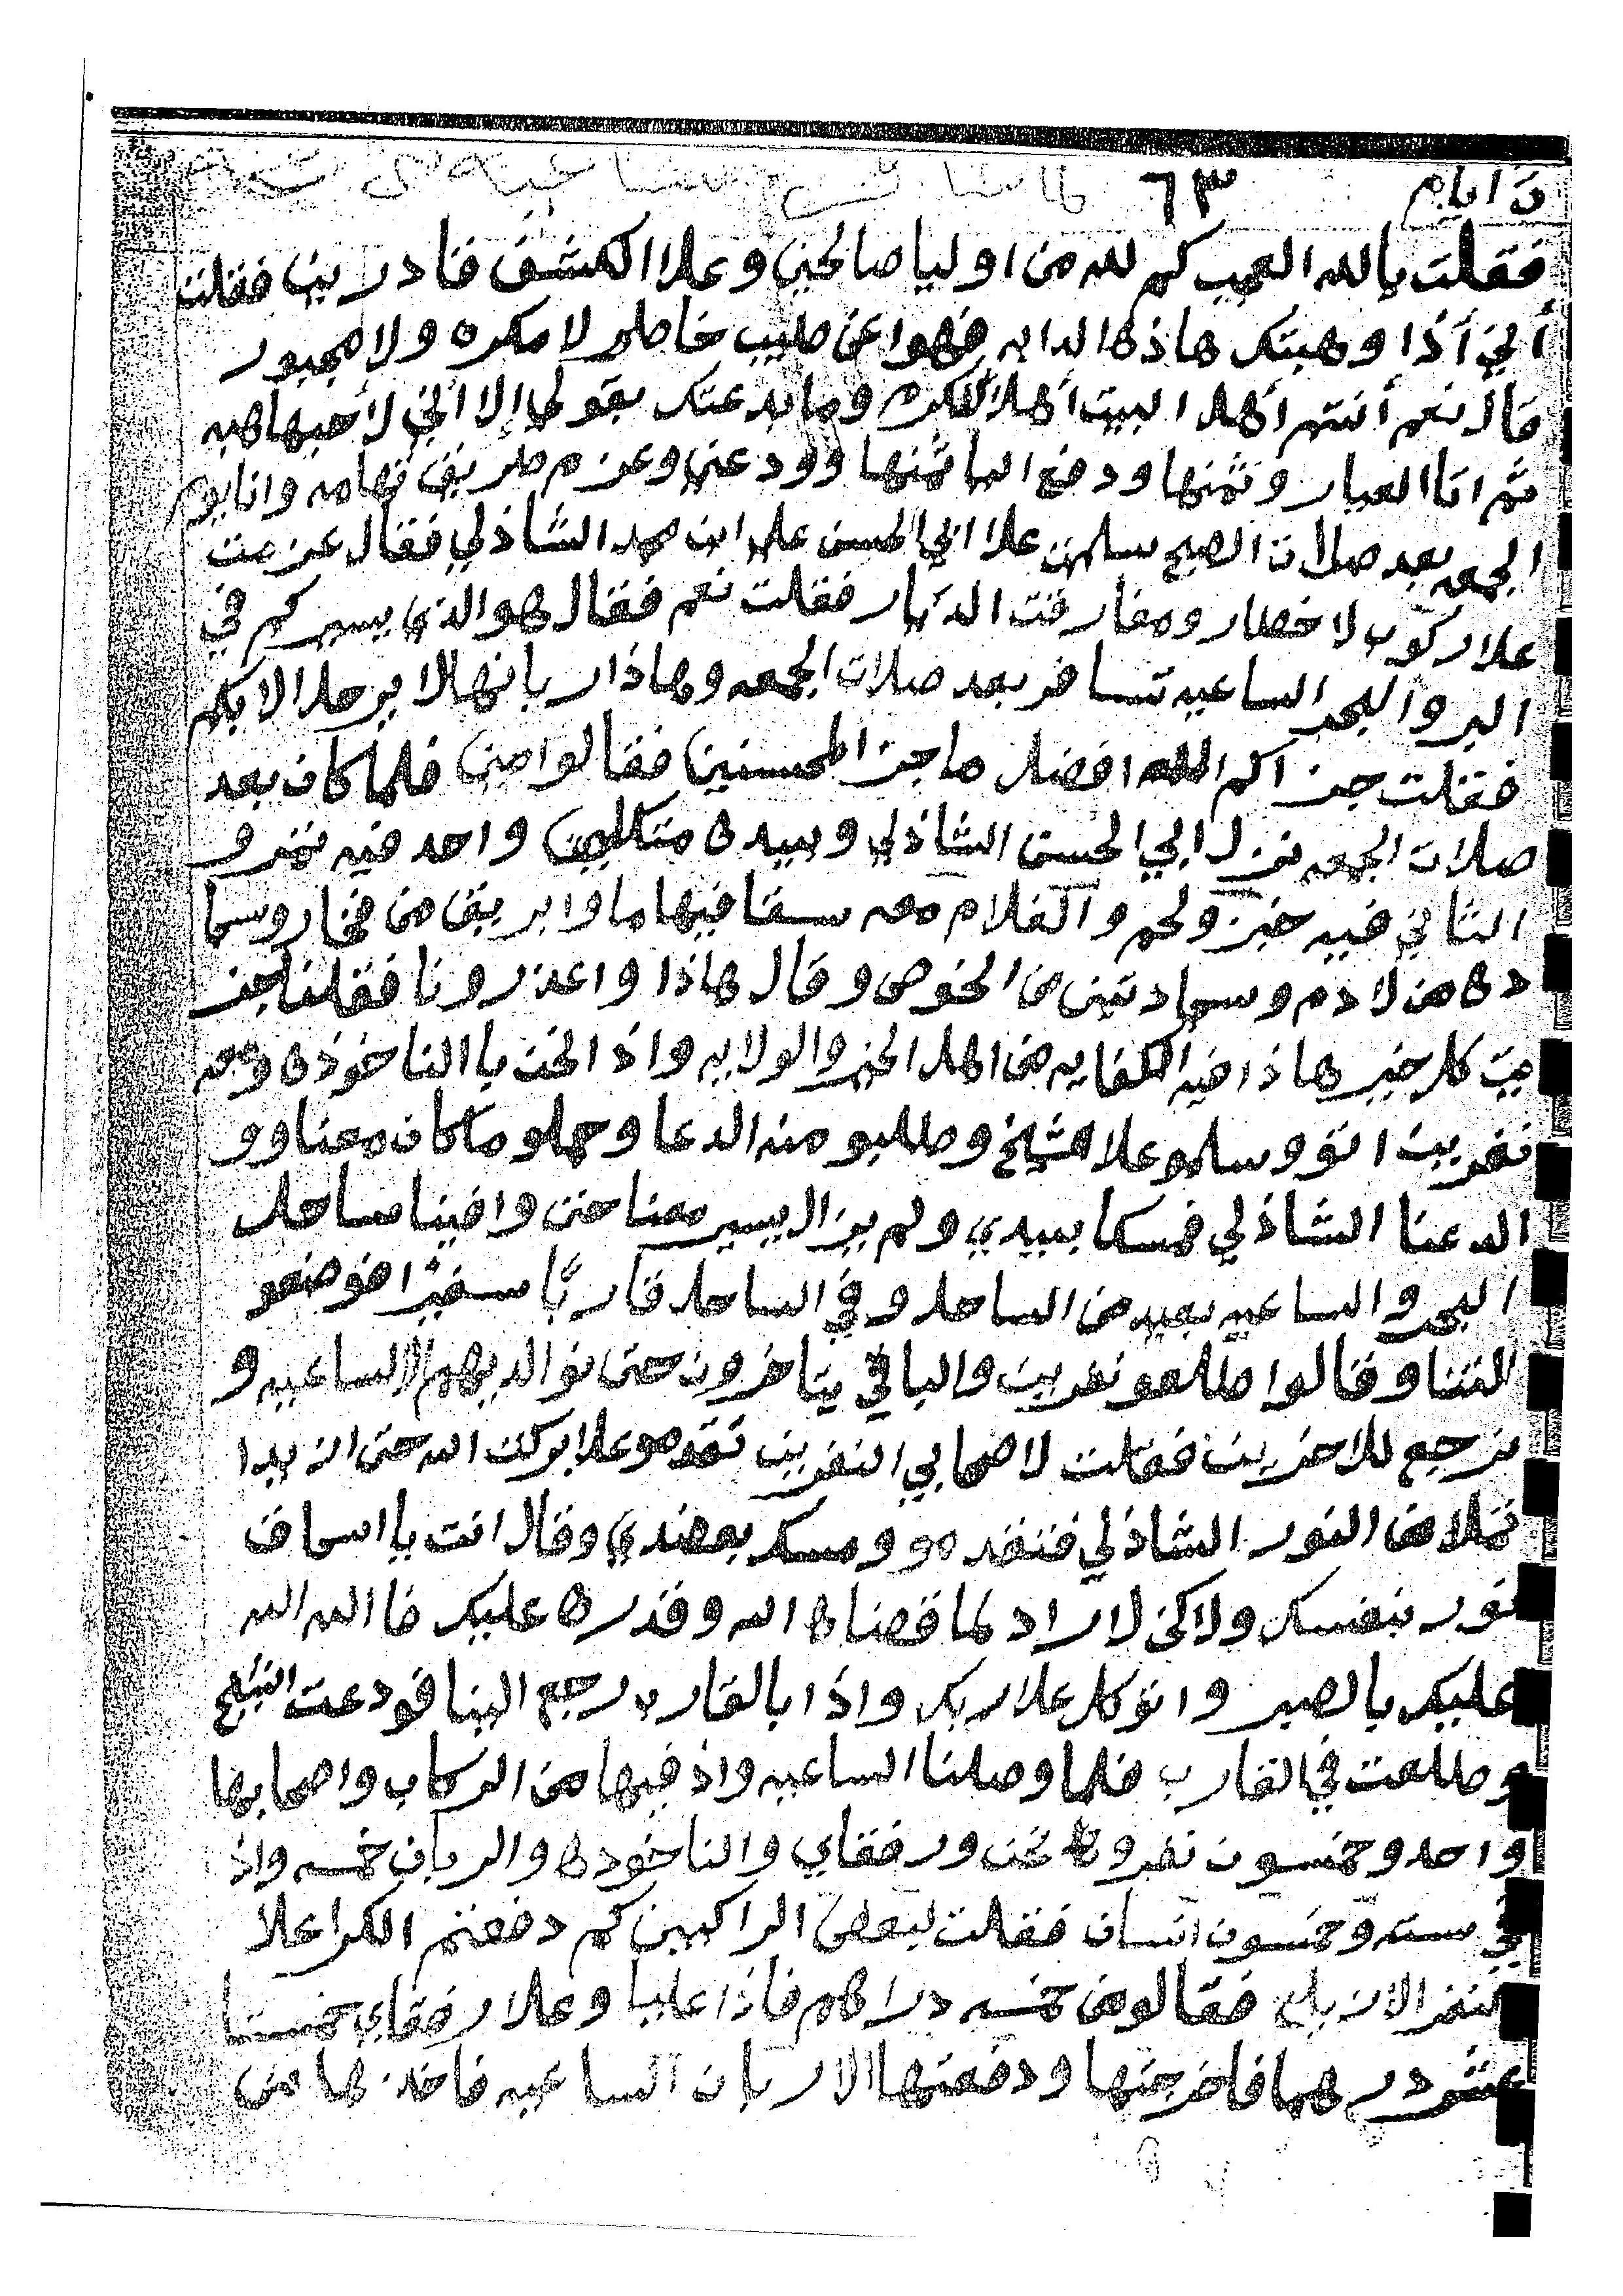 ن ايام ٦٣
فقلت يالله العجب كم لله من اوليا صالحين وعلا الكشف قادرين فقلت
أني أذا وهبتك هاذه الدابه فهوا عن طيب خاطر لا مكره ولا مجبور
قال نعم أنتم أهل البيت أهل الكرم وما بدعتك بقولي إلا اني لأحبها هبه
ثم اتا العيار وثمنها ودفع اليا ثمنها وودعني وعزم طريق تهامه وانا يوم
الجمعه بعد صلات الصبح سلمت علا ابي الحسن علي ابن محمد الشاذلي فقال عزمت
علا ركوب لا خطار ومفارقت الديار فقلت نعم فقال هو الذي يسيركم في
البر والبحر الساعيه تسافر بعد صلات الجمعه وهاذا ربانها لا يرحل الا بكم
فقلت جزاكم الله افضل ما جزا المحسنين فقالوا امين فلما كان بعد
صلات الجمعه نزل ابي الحسن الشاذلي وبيده متكلين واحد فيه تمر و
الثاني فيه خبز ولحم والغلام معه سقا فيها ما وابريق من فخار وسما
ده من لادم وسمادتين من الخوص وقال هاذا واعذرونا فقلنا جز
يت كل خير هاذا فيه الكفايه من اهل الخير والولايه واذ انحن باالناخوذه ومعه
نفرين اتو وسلمو علا الشيخ وطلبو منه الدعا وحملو ما كان معنا وو
الدعنا الشاذلي فمسكا بيدي ولم يزال يسير معنا حتى وافينا ساحل
البحر والساعيه بعيد من الساحل وفي الساحل قاربًا سفيرا فوضعو
المتنا وقالوا طلعو نفرين والباقي يتاخرون حتى نوالديهم الا الساعيه و
نرجع للاخرين فقلت لاصحابي النفرين تقدمو علا بركت الله حتى ازيدا
نملا من النور الشاذلي فتقدمو ومسك بعضدي وقال انت يا اسحاق
نور بنفسك ولاكن لا راد لما قضاه الله وقدره عليك فا الله الله
عليك بالصبر واتوكل علا ربك واذا بالقارب رجع الينا فودعت الشيخ
وطلعت في القارب فلما وصلنا الساعيه واذ فيها من الركاب واصحابها
واحد وخمسون نفر ونحن ورفقاي والناخوده والربان خمسه واذ
في سته وخمسون انسان فقلت لبعض الراكبين كم دفعتم الكرا علا
النفر الا زيلع فقالو من خمسه دراهم فاذا عليا وعلا رفقاي خمستا
عشر درهما فاخرجتها ودفعتها الا ربان الساعيه فاخذها من